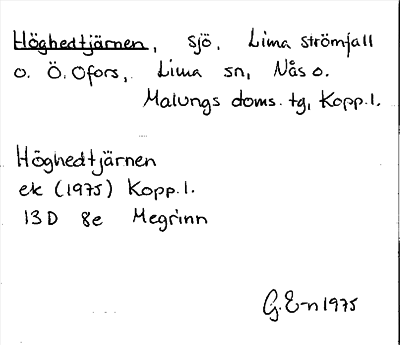 Höghedtjärnen, sjö. Lima strömfall
o. Ö. Ofors, Lima sn, Nås o.
Malungs doms. tg, Kopp.l.
Höghedtjärnen
ek (1975) Kopp.l.
13D 8e Megrinn
G. E-n 1975